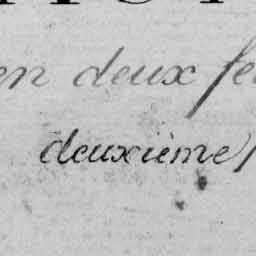 en deux fe
deuxième